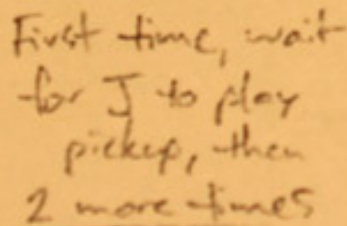 First time, wait
for J to play
pickup, then
2 more times